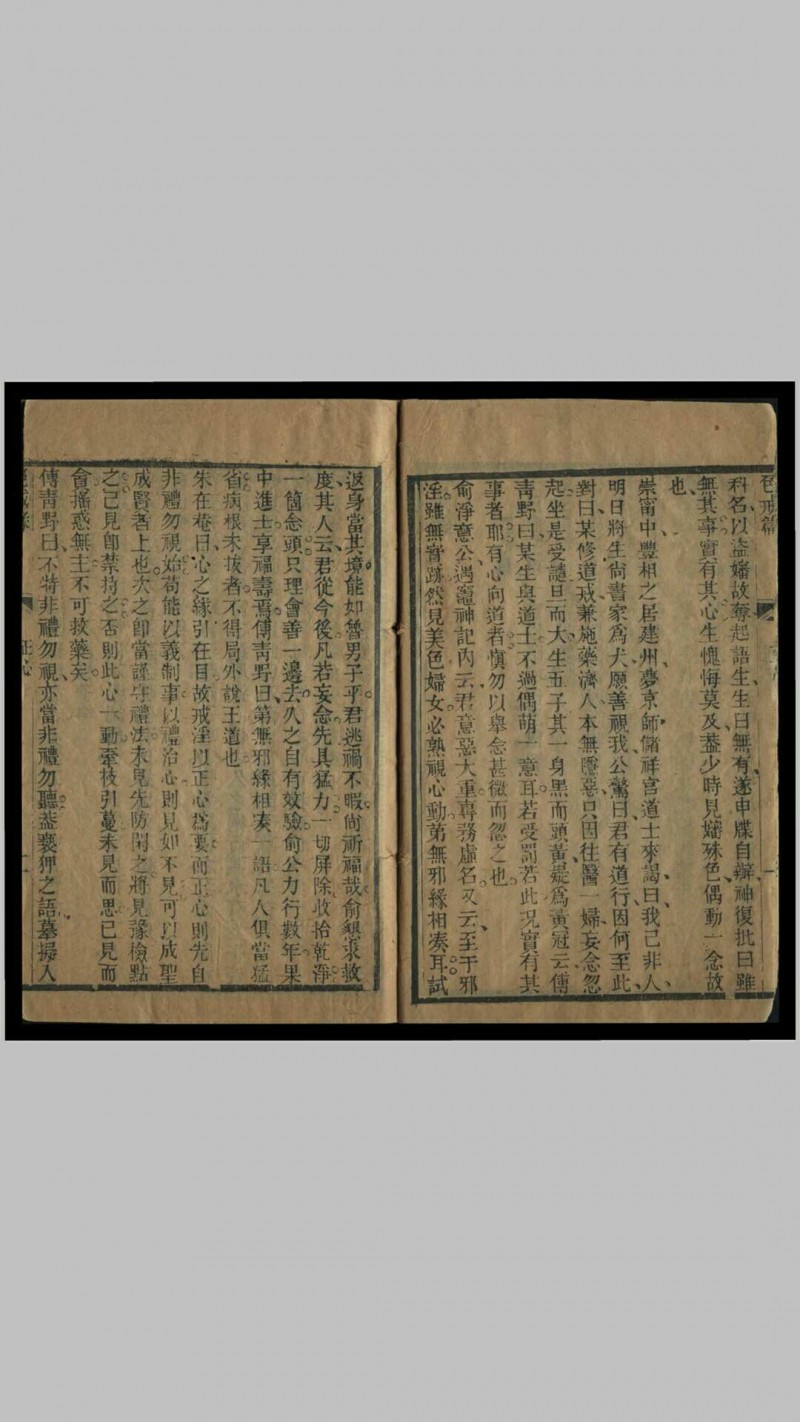 色戒篇
科名以盜嬸故奪起語生生曰無有遂申牒自辯神復批曰雖
無其事實有其心生愧悔莫及葢少時見嬸殊色偶動一念故
也
崇甯中豐相之居建州夢京師儲祥宮道士來謁曰我已非人
明日將生尙書家爲犬願善視我公驚曰君有道行因何至此
對曰某修道戒兼施藥濟人本無隱惡只因往醫一婦妄念忽
起坐是受譴旦而犬生五子其一身黑而頭黃疑爲黃冠云傳
靑野曰某生與道士不過偶萌一意耳若受罰若此況實有其
事者耶有心向道者愼勿以舉念甚微而忽之也
俞淨意公遇竈神記內云君意惡太重專務虛名又云至于邪
淫雖無實跡然見美色婦女必熟視心動第無邪緣相湊耳試
返身當其境能如魯男子乎君逃禍不暇尙祈福哉俞懇求救
度其人云君從今後凡若妄念先具猛力一切屏除收拾乾淨
一箇念頭只理會善一邊去久之自有效驗俞公力行數年果
中進士享福壽焉傳靑野曰第無邪緣相湊一語凡人俱當猛
省病根未拔者不得局外說王道也
朱在菴曰心之緣引在目故戒淫以正心爲要而正心則先自
非禮勿視始苟能以義制事以禮治心則見如不見可以成聖
成賢者上也次之卽當謹守禮法未見先防閑之將見豫檢點
之已見卽禁持之否則此心一動牽枝引蔓未見而思已見而
會搖惑無主不可救藥矣
傳靑野曰不特非禮勿視亦當非禮勿聽葢褻狎之語摹擬入
正心